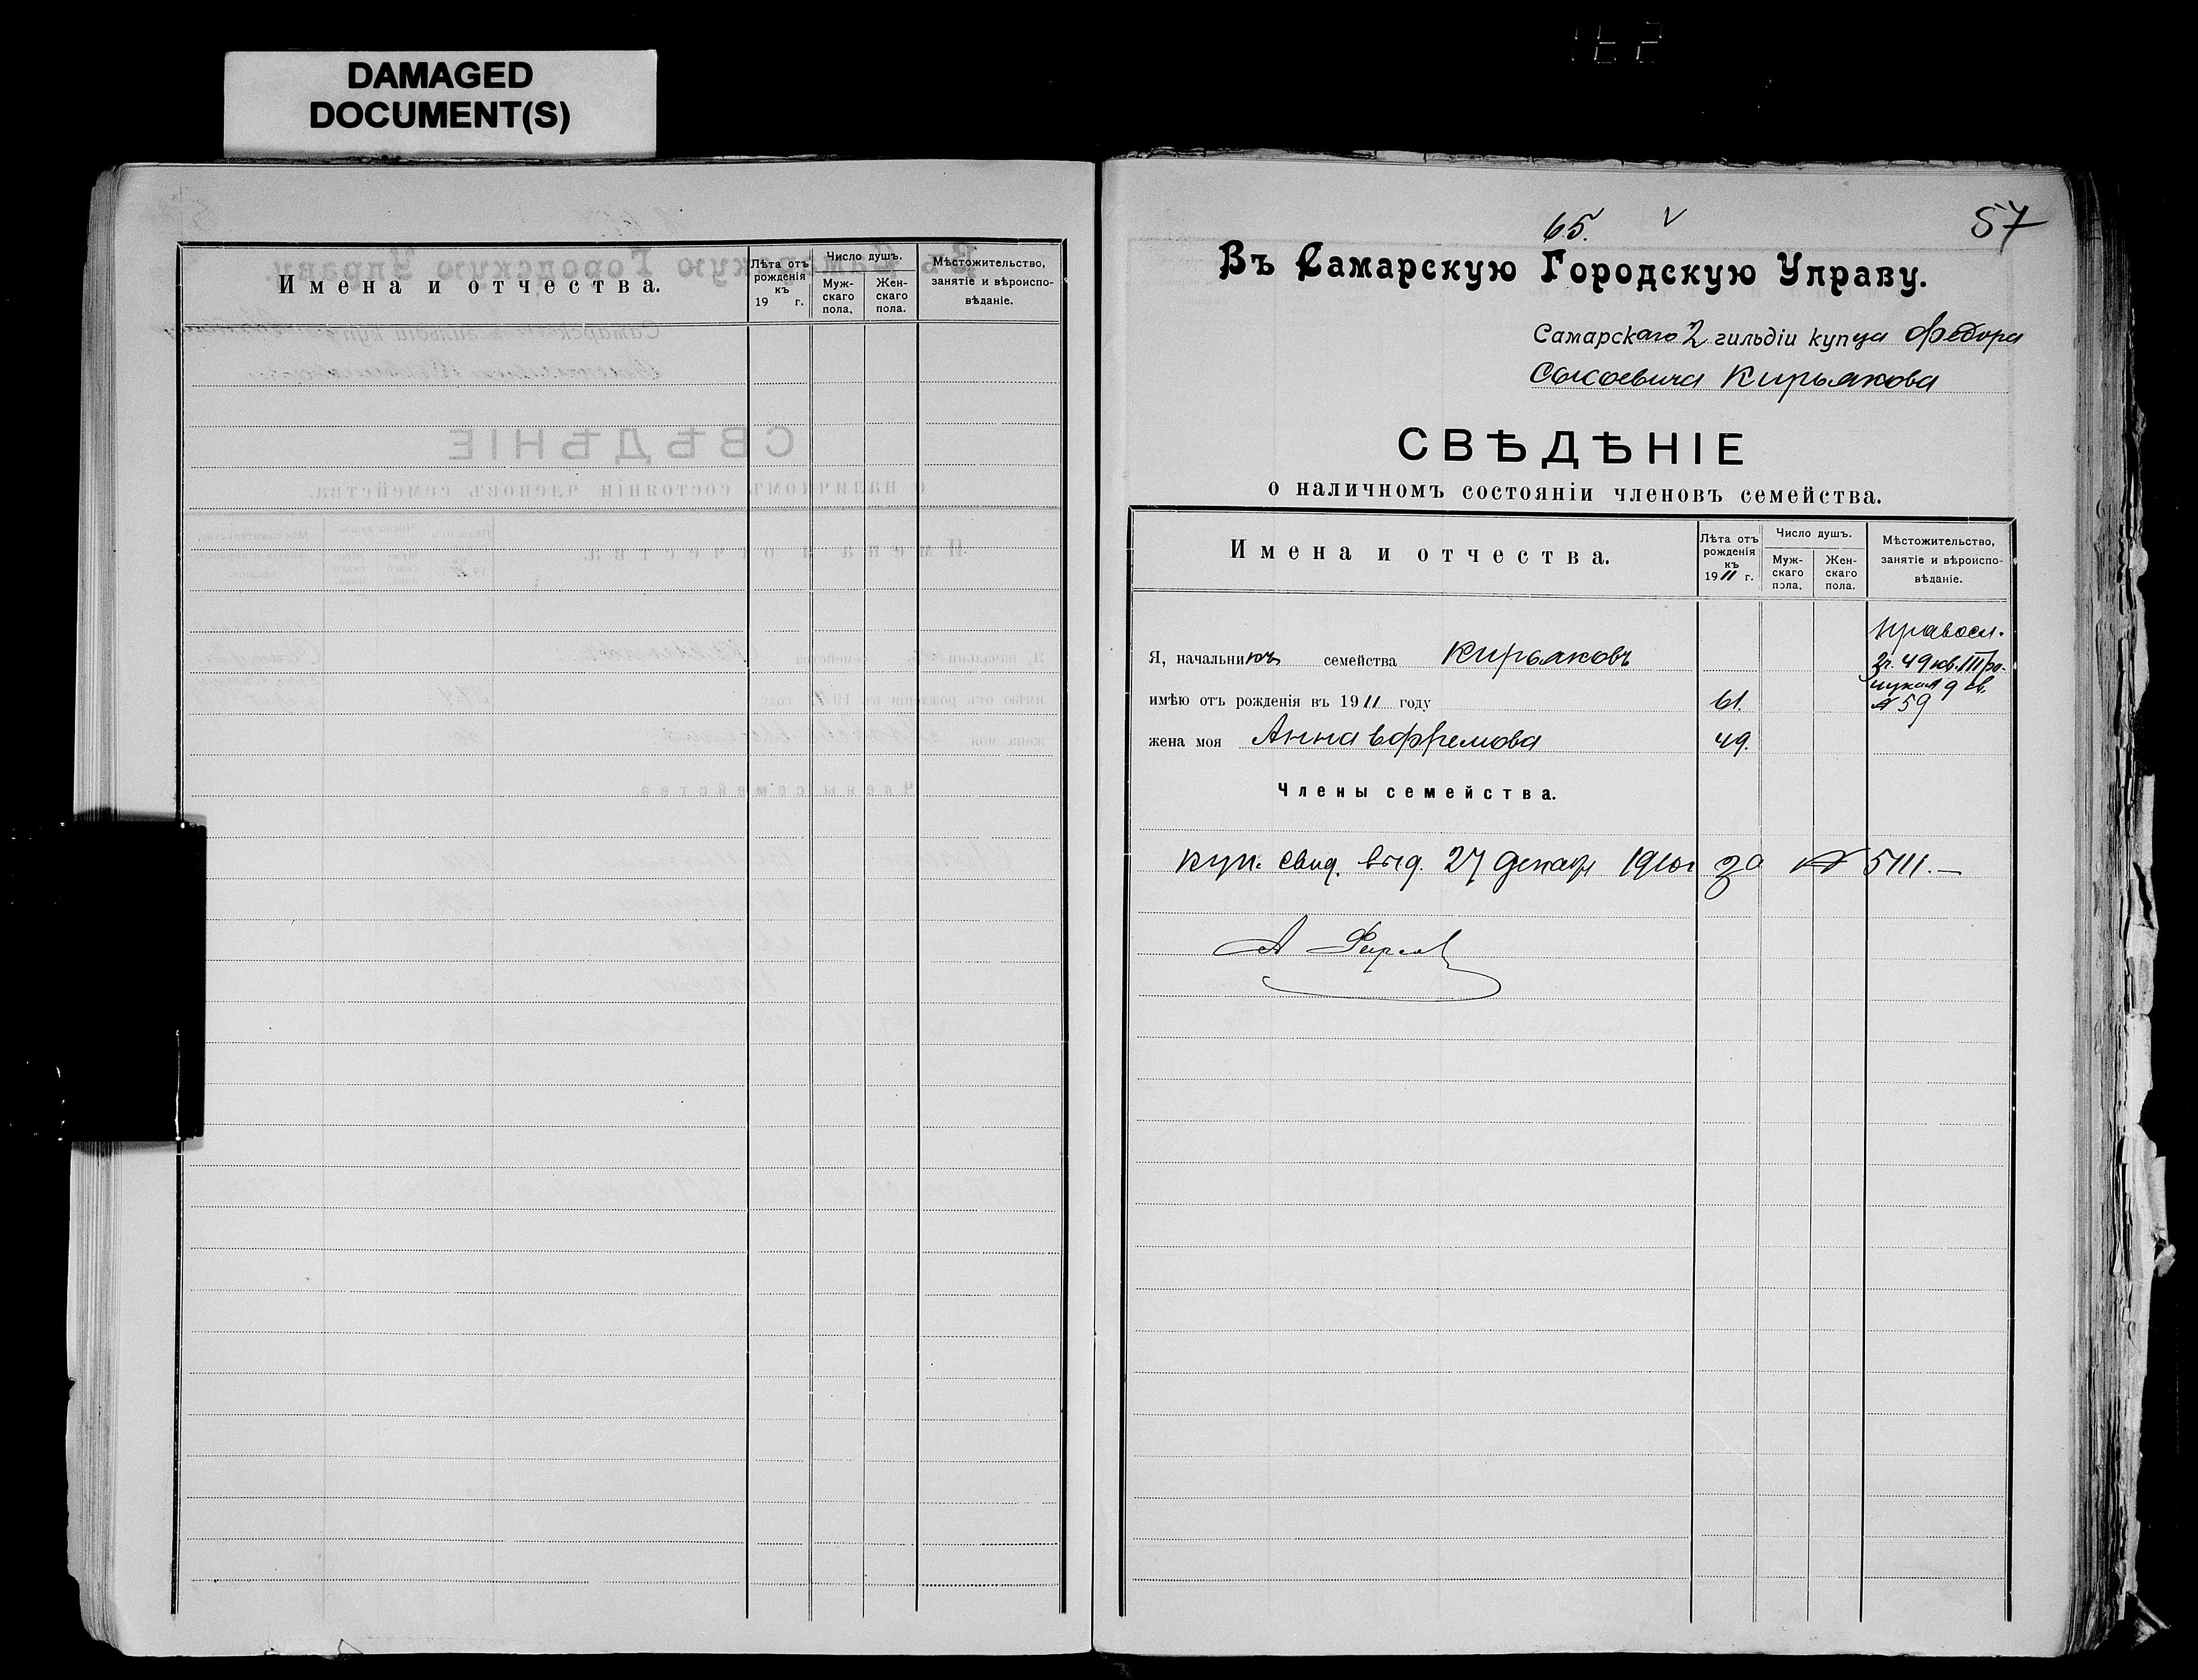 DAMAGED
DOCUMENT(S)
Имена и отчества.
Лѣта отъ рожденія къ 19 г.
Число душъ.
Муж-скаго пола.
Жен-скаго пола.
Мѣстожительство, занятіе и вѣроиспо-вѣданіе.
65. V
57
Въ Самарскую Городскую Управу.
Самарскаго 2 гильдіи купца Федора
Кирьякова
СВѢДѢНІЕ
о наличномъ состояніи членовъ семейства.
Имена и отчества.
Лѣта отъ рожденія къ 1911 г.
Число душъ.
Муж-скаго пола.
Жен-скаго пола.
Мѣстожительство, занятіе и вѣроиспо-вѣданіе.
Правосл.
Я, начальникъ семейства Кирьяковъ
2 ч. 49 кв. Тро-
ицкая 9 св.
имѣю отъ рожденія въ 1911 году 61.
№ 59
жена моя Анна Ефремова 49.
Члены семейства.
куп. свид. выд. 27 декабр 1910 г за № 5111.—
А